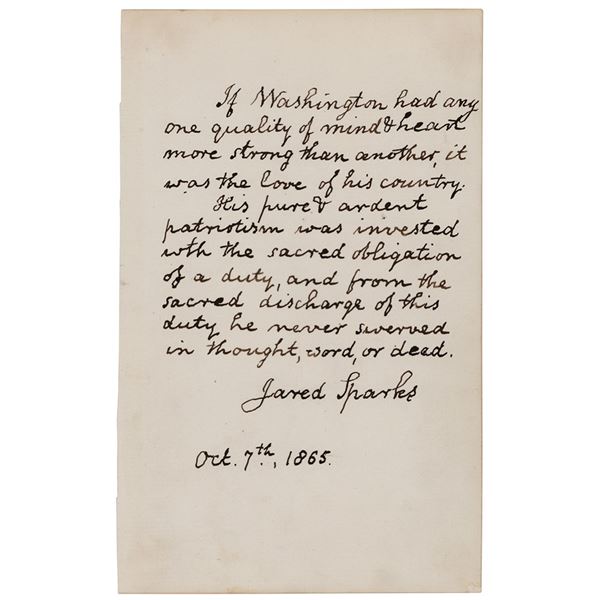 If Washington had any
one quality of mind & heart
more strong than another, it
was the love of his country.
His pure & ardent
patriotism was invested
wth the sacred obligation
of a duty, and from the
sacred discharge of this
duty he never swerved
in thought, word, or deed.
Jared Sparks
Oct. 7th., 1865.